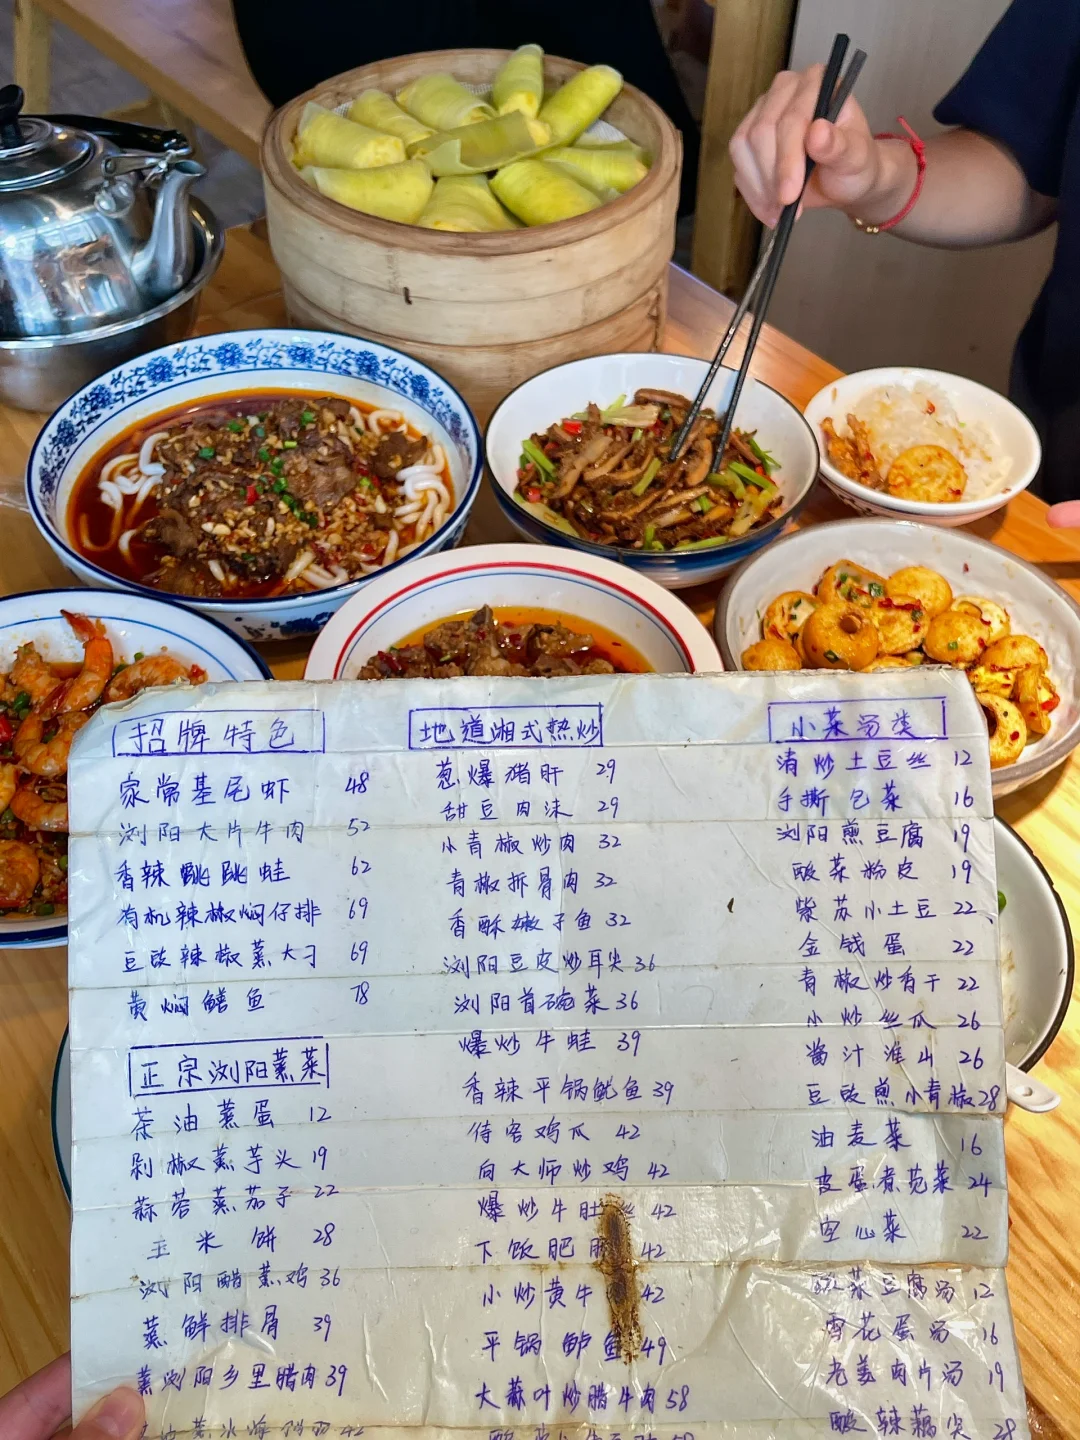 招牌特色
家常基尾虾 48
浏阳大片牛肉 52
香辣跳跳蛙 62
有机辣椒焖仔排 69
豆豉辣椒蒸大刁 69
黄焖鳝鱼 78
正宗浏阳蒸菜
茶油蒸蛋 12
剁椒蒸芋头 19
蒜蓉蒸茄子 22
玉米饼 28
浏阳醋蒸鸡 36
蒸鲜排骨 39
蒸浏阳乡里腊肉 39
42
地道湘式热炒
葱爆猪肝 29
甜豆肉沫 29
小青椒炒肉 32
青椒拆骨肉 32
香酥嫩子鱼 32
浏阳豆皮炒耳尖 36
浏阳首碗菜 36
爆炒牛蛙 39
香辣平锅鱿鱼 39
侍客鸡爪 42
向大师炒鸡 42
爆炒牛肚丝 42
下饭肥 42
小炒黄牛 42
平锅鲈鱼 49
大蒜叶炒腊牛肉 58
酸 58
小菜汤类
清炒土豆丝 12
手撕包菜 16
浏阳煎豆腐 19
酸菜粉皮 19
紫苏小土豆 22、
金钱蛋 22
青椒炒香干 22
小炒丝瓜 26
酱汁淮山 26
豆豉煎小青椒 28
油麦菜 16
皮蛋煮苋菜 24
空心菜 22
酸菜豆腐汤 12
雪花蛋汤 16
老姜肉片汤 19
酸辣藕尖 28